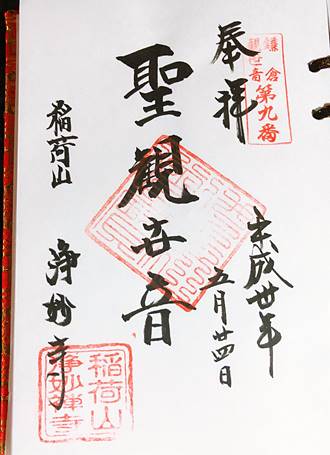 鎌倉
観世音
第九番
奉拝
平成卅年
五月廿四日
聖観世音
稲荷山
浄妙寺
稲荷山
浄妙禅寺